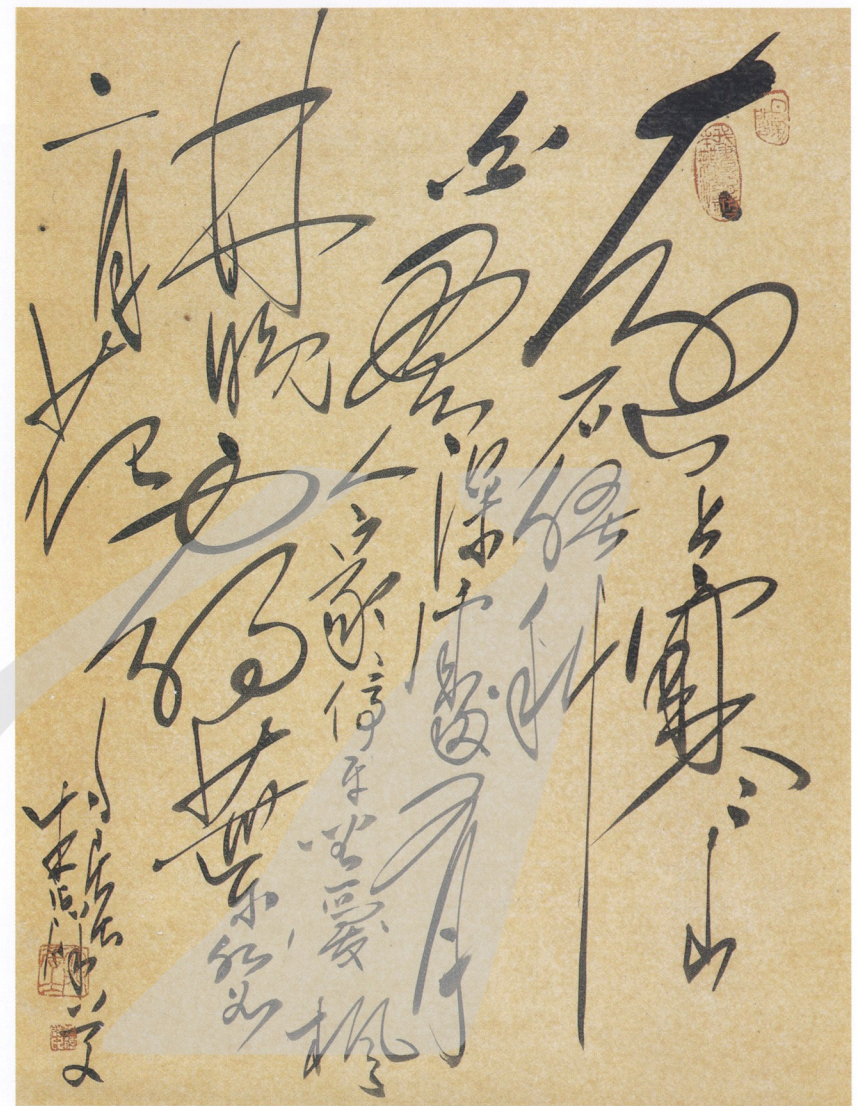 遠上寒山
石徑斜
白雲深處有
人家停車坐愛楓
林晚霜葉紅於
二月花